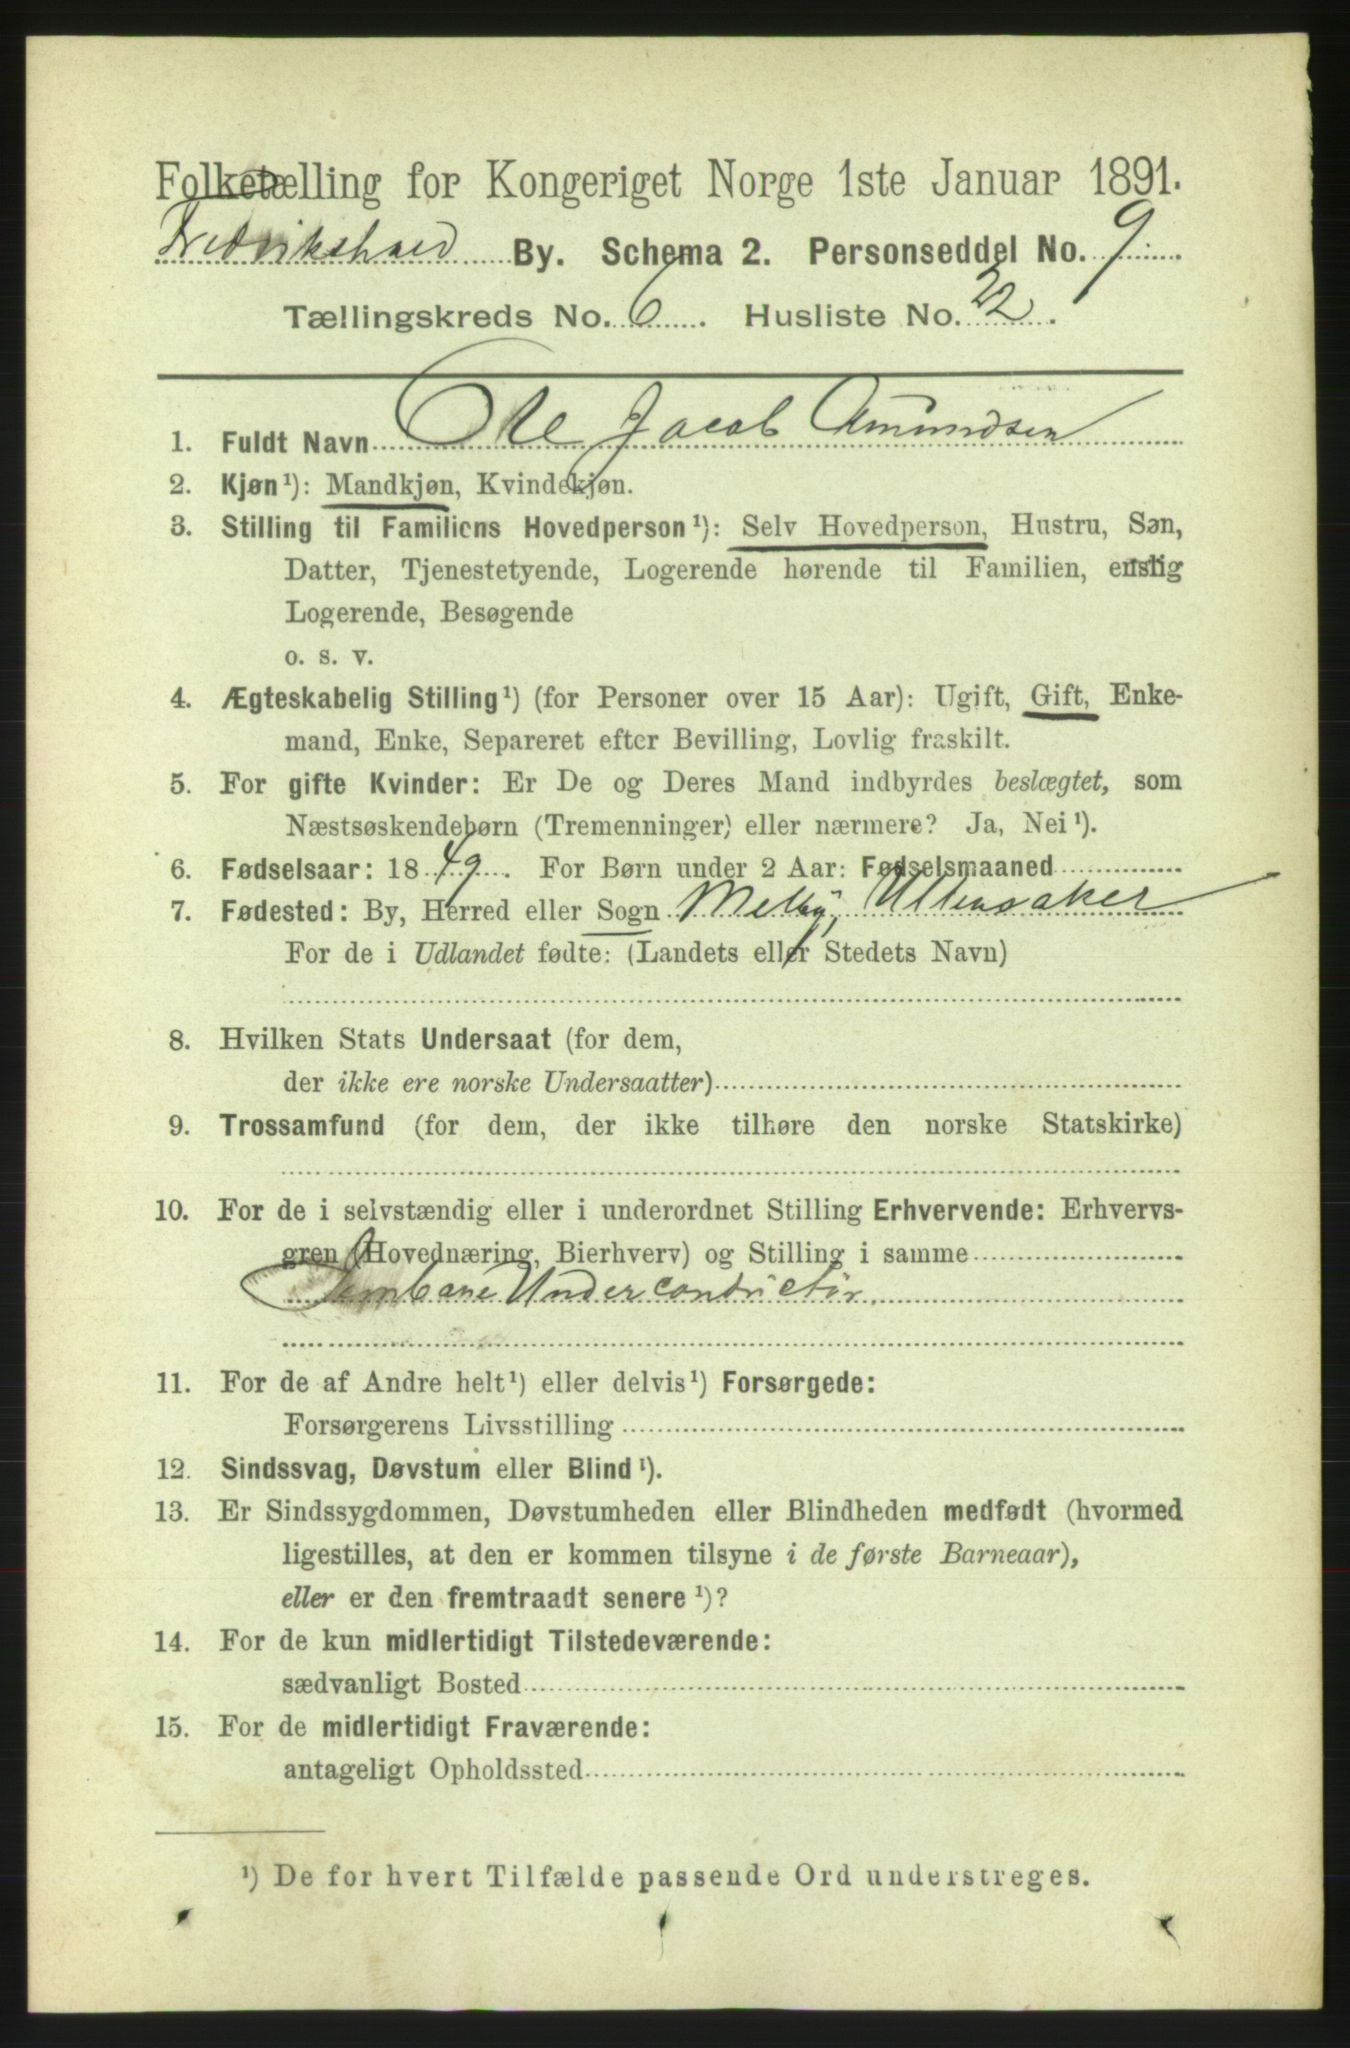 Folketælling for Kongeriget Norge 1ste Januar 1891.
Fredrikshald By. Schema 2. Personseddel No. 9
Tællingskreds No. 6. Husliste No. 22.
1. Fuldt Navn Ole Jacob Amundsen
2. Kjøn¹): Mandkjøn, Kvindekjøn.
3. Stilling til Familiens Hovedperson¹): Selv Hovedperson, Hustru, Søn,
Datter, Tjenestetyende, Logerende hørende til Familien, enslig
Logerende, Besøgende
o. s. v.
4. Ægteskabelig Stilling¹) (for Personer over 15 Aar): Ugift, Gift, Enke-
mand, Enke, Separeret efter Bevilling, Lovlig fraskilt.
5. For gifte Kvinder: Er De og Deres Mand indbyrdes beslægtet, som
Næstsøskendebørn (Tremenninger) eller nærmere? Ja, Nei¹).
6. Fødselsaar: 1849. For Børn under 2 Aar: Fødselsmaaned
7. Fødested: By, Herred eller Sogn Melby, Ullensaker
For de i Udlandet fødte: (Landets eller Stedets Navn)
8. Hvilken Stats Undersaat (for dem,
der ikke ere norske Undersaatter)
9. Trossamfund (for dem, der ikke tilhøre den norske Statskirke)
10. For de i selvstændig eller i underordnet Stilling Erhvervende: Erhvervs-
gren (Hovednæring, Bierhverv) og Stilling i samme
Jernbane Underconductør.
11. For de af Andre helt¹) eller delvis¹) Forsørgede:
Forsørgerens Livsstilling
12. Sindssvag, Døvstum eller Blind¹).
13. Er Sindssygdommen, Døvstumheden eller Blindheden medfødt (hvormed
ligestilles, at den er kommen tilsyne i de første Barneaar),
eller er den fremtraadt senere¹)?
14. For de kun midlertidigt Tilstedeværende:
sædvanligt Bosted
15. For de midlertidigt Fraværende:
antageligt Opholdssted
¹) De for hvert Tilfælde passende Ord understreges.